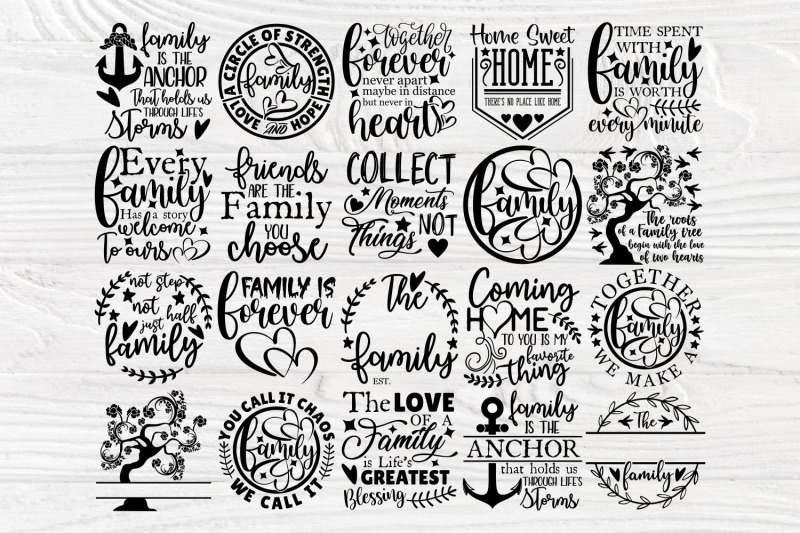 family
IS THE
ANCHOR
That holds us
THROUGH LIFE'S
Storms
A CIRCLE OF STRENGTH
family
LOVE AND HOPE
together
forever
never apart
maybe in distance
but never in
heart
Home Sweet
HOME
THERE'S NO PLACE LIKE HOME
TIME SPENT
WITH
family
IS WORTH
every minute
Every
family
Has a story
welcome
To ours
friends
ARE THE
Family
YOU
choose
COLLECT
Moments
NOT
Things
family
The roots
of a Family tree
begin with the love
of two hearts
not step
not half
just
family
FAMILY IS
forever
The
family
EST.
Coming
HOME
TO YOU IS MY
favorite
thing
TOGETHER
family
WE MAKE A
YOU CALL IT CHAOS
family
WE CALL IT
The LOVE
OF A
Family
is Life's
GREATEST
Blessing
family
IS THE
ANCHOR
that holds us
THROUGH LIFE'S
Storms
The
family